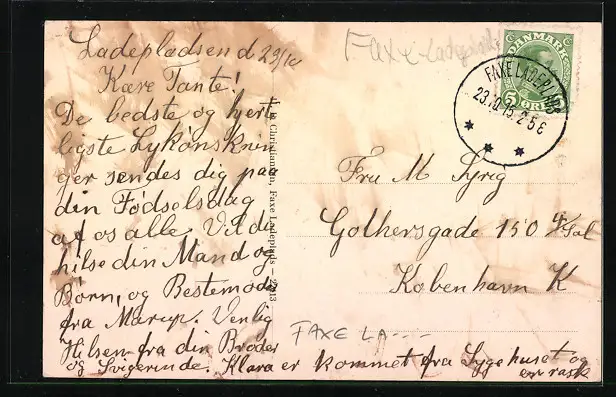 Ladepladsen d 23/10
Kære Tante!
De bedste og hjert
ligste Lykønsknin
ger sendes dig paa
din Fødselsdag
af os alle. Vil du
hilse din Mand og
Børn, og Bestemoder
fra Marup. Venlig
Hilsen fra din Broder
og Svigerinde. Klara er kommet fra Sygehuset og
er rask
Christiansen, Faxe Ladeplads
Faxe Ladeplads
DANMARK
5 ØRE
FAXE LADEPLADS
23.10.15. 2-5 E
Fru M Syrig
Gothersgade 150 4 Sal
København K
FAXE LA----